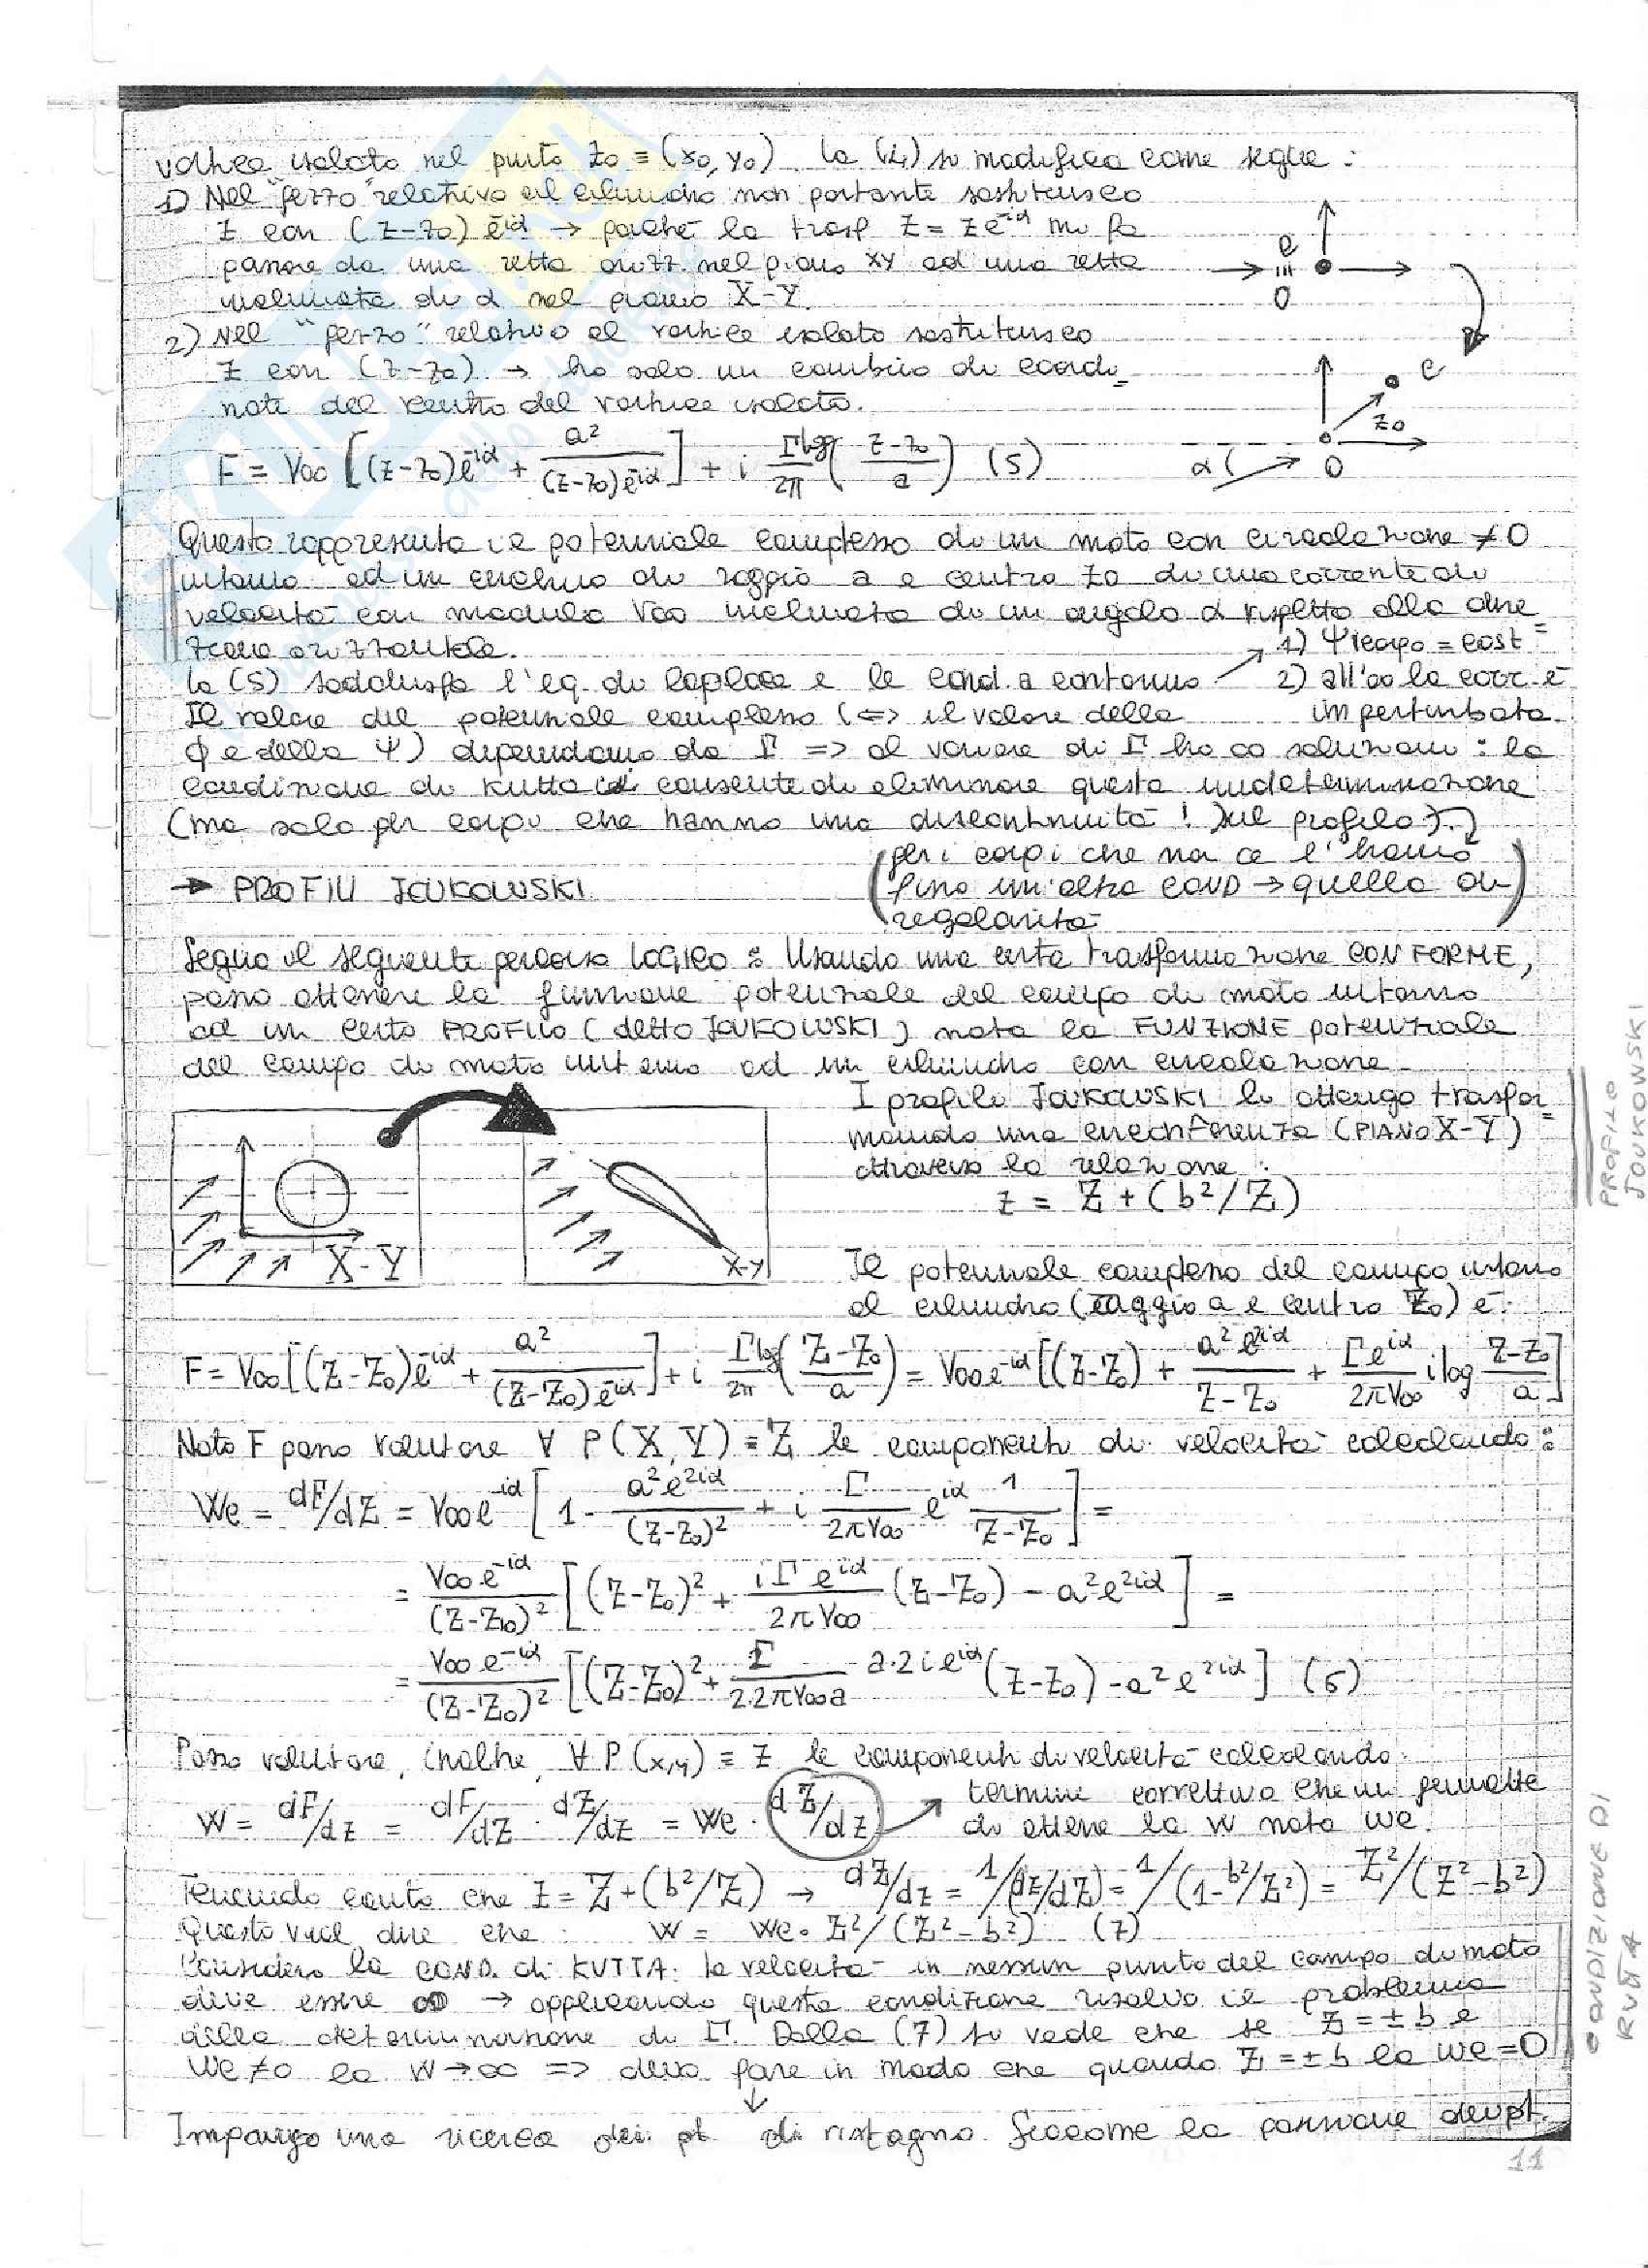 vortice isolato nel punto z₀ ≡ (x₀, y₀). la (4) si modifica come segue :
1) Nel "pezzo" relativo al cilindro non portante sostituisco
z con (z-z₀) e^-iα → poiché la trasf z = z e^-iα mi fa
passare da una retta orizz. nel piano xy ad una retta
inclinata di α nel piano X-Y.
C
≡
O
2) Nel "pezzo" relativo al vortice isolato sostituisco
z con (z-z₀) → ho solo un cambio di coordi=
nate del centro del vortice isolato.
C
z₀
α
O
F = V∞ [(z-z₀)e^-iα + a²/((z-z₀)e^-iα)] + i Γ/2π log((z-z₀)/a) (5)
Questo rappresenta il potenziale complesso di un moto con circolazione ≠ 0
intorno ad un cilindro di raggio a e centro z₀ di una corrente di
velocità con modulo V∞ inclinata di un angolo α rispetto alla dire=
zione orizzontale.
1) Ψcorpo = cost
la (5) soddisfa l'eq. di Laplace e le cond. a contorno
2) all'∞ la corr. è
imperturbata
Il valore del potenziale complesso (<=> il valore della
φ e della Ψ) dipendono da Γ => al variare di Γ ho ∞ soluzioni : la
condizione di Kutta ci consente di eliminare questa indeterminazione
(ma solo per corpi che hanno una discontinuità ! sul profilo).
(per i corpi che non ce l'hanno
→ PROFILI JOUKOWSKI
uso un'altra COND → quella di
regolarità)
Seguo il seguente percorso LOGICO : Usando una certa trasformazione CONFORME,
posso ottenere la funzione potenziale del campo di moto intorno
ad un certo PROFILO (detto JOUKOWSKI) nota la FUNZIONE potenziale
del campo di moto intorno ad un cilindro con circolazione.
X-Y
x-y
I profili JOUKOWSKI li ottengo trasfor=
mando una circonferenza (PIANO X-Y)
attraverso la relazione :
z = Z + (b²/Z)
PROFILO
JOUKOWSKI
Il potenziale complesso del campo intorno
al cilindro (raggio a e centro Z₀) è:
F = V∞[(Z-Z₀)e^-iα + a²/((Z-Z₀)e^-iα)] + i Γ/2π log((Z-Z₀)/a) = V∞e^-iα[(Z-Z₀) + a²e^2iα/(Z-Z₀) + Γe^iα/2πV∞ i log (Z-Z₀)/a]
Noto F posso valutare ∀ P(X,Y) ≡ Z le componenti di velocità calcolando :
Wc = dF/dZ = V∞e^-iα [1 - a²e^2iα/(Z-Z₀)² + i Γ/2πV∞ e^iα 1/(Z-Z₀)] =
= V∞e^-iα/(Z-Z₀)² [(Z-Z₀)² + iΓe^iα/2πV∞ (Z-Z₀) - a²e^2iα] =
= V∞e^-iα/(Z-Z₀)² [(Z-Z₀)² + Γ/2·2πV∞a a·2ie^iα(Z-Z₀) - a²e^2iα] (6)
Posso valutare, inoltre, ∀ P(x,y) ≡ z le componenti di velocità calcolando:
W = dF/dz = dF/dZ · dZ/dz = Wc · dZ/dz
termine correttivo che mi permette
di ottene la W nota Wc.
Tenendo conto che z = Z+(b²/Z) → dZ/dz = 1/(dz/dZ) = 1/(1-b²/Z²) = Z²/(Z²-b²)
Questo vuol dire che : W = Wc · Z²/(Z²-b²) (7)
Considero la COND. di KUTTA: la velocità in nessun punto del campo di moto
deve essere ∞ → applicando questa condizione risolvo il problema
della determinazione di Γ. Dalla (7) si vede che se Z = ± b e
Wc ≠ 0 la W → ∞ => devo fare in modo che quando Z = ± b la Wc = 0
↓
CONDIZIONE DI
KUTTA
Impongo una ricerca dei pt di ristagno. Siccome la posizione dei pt.
11